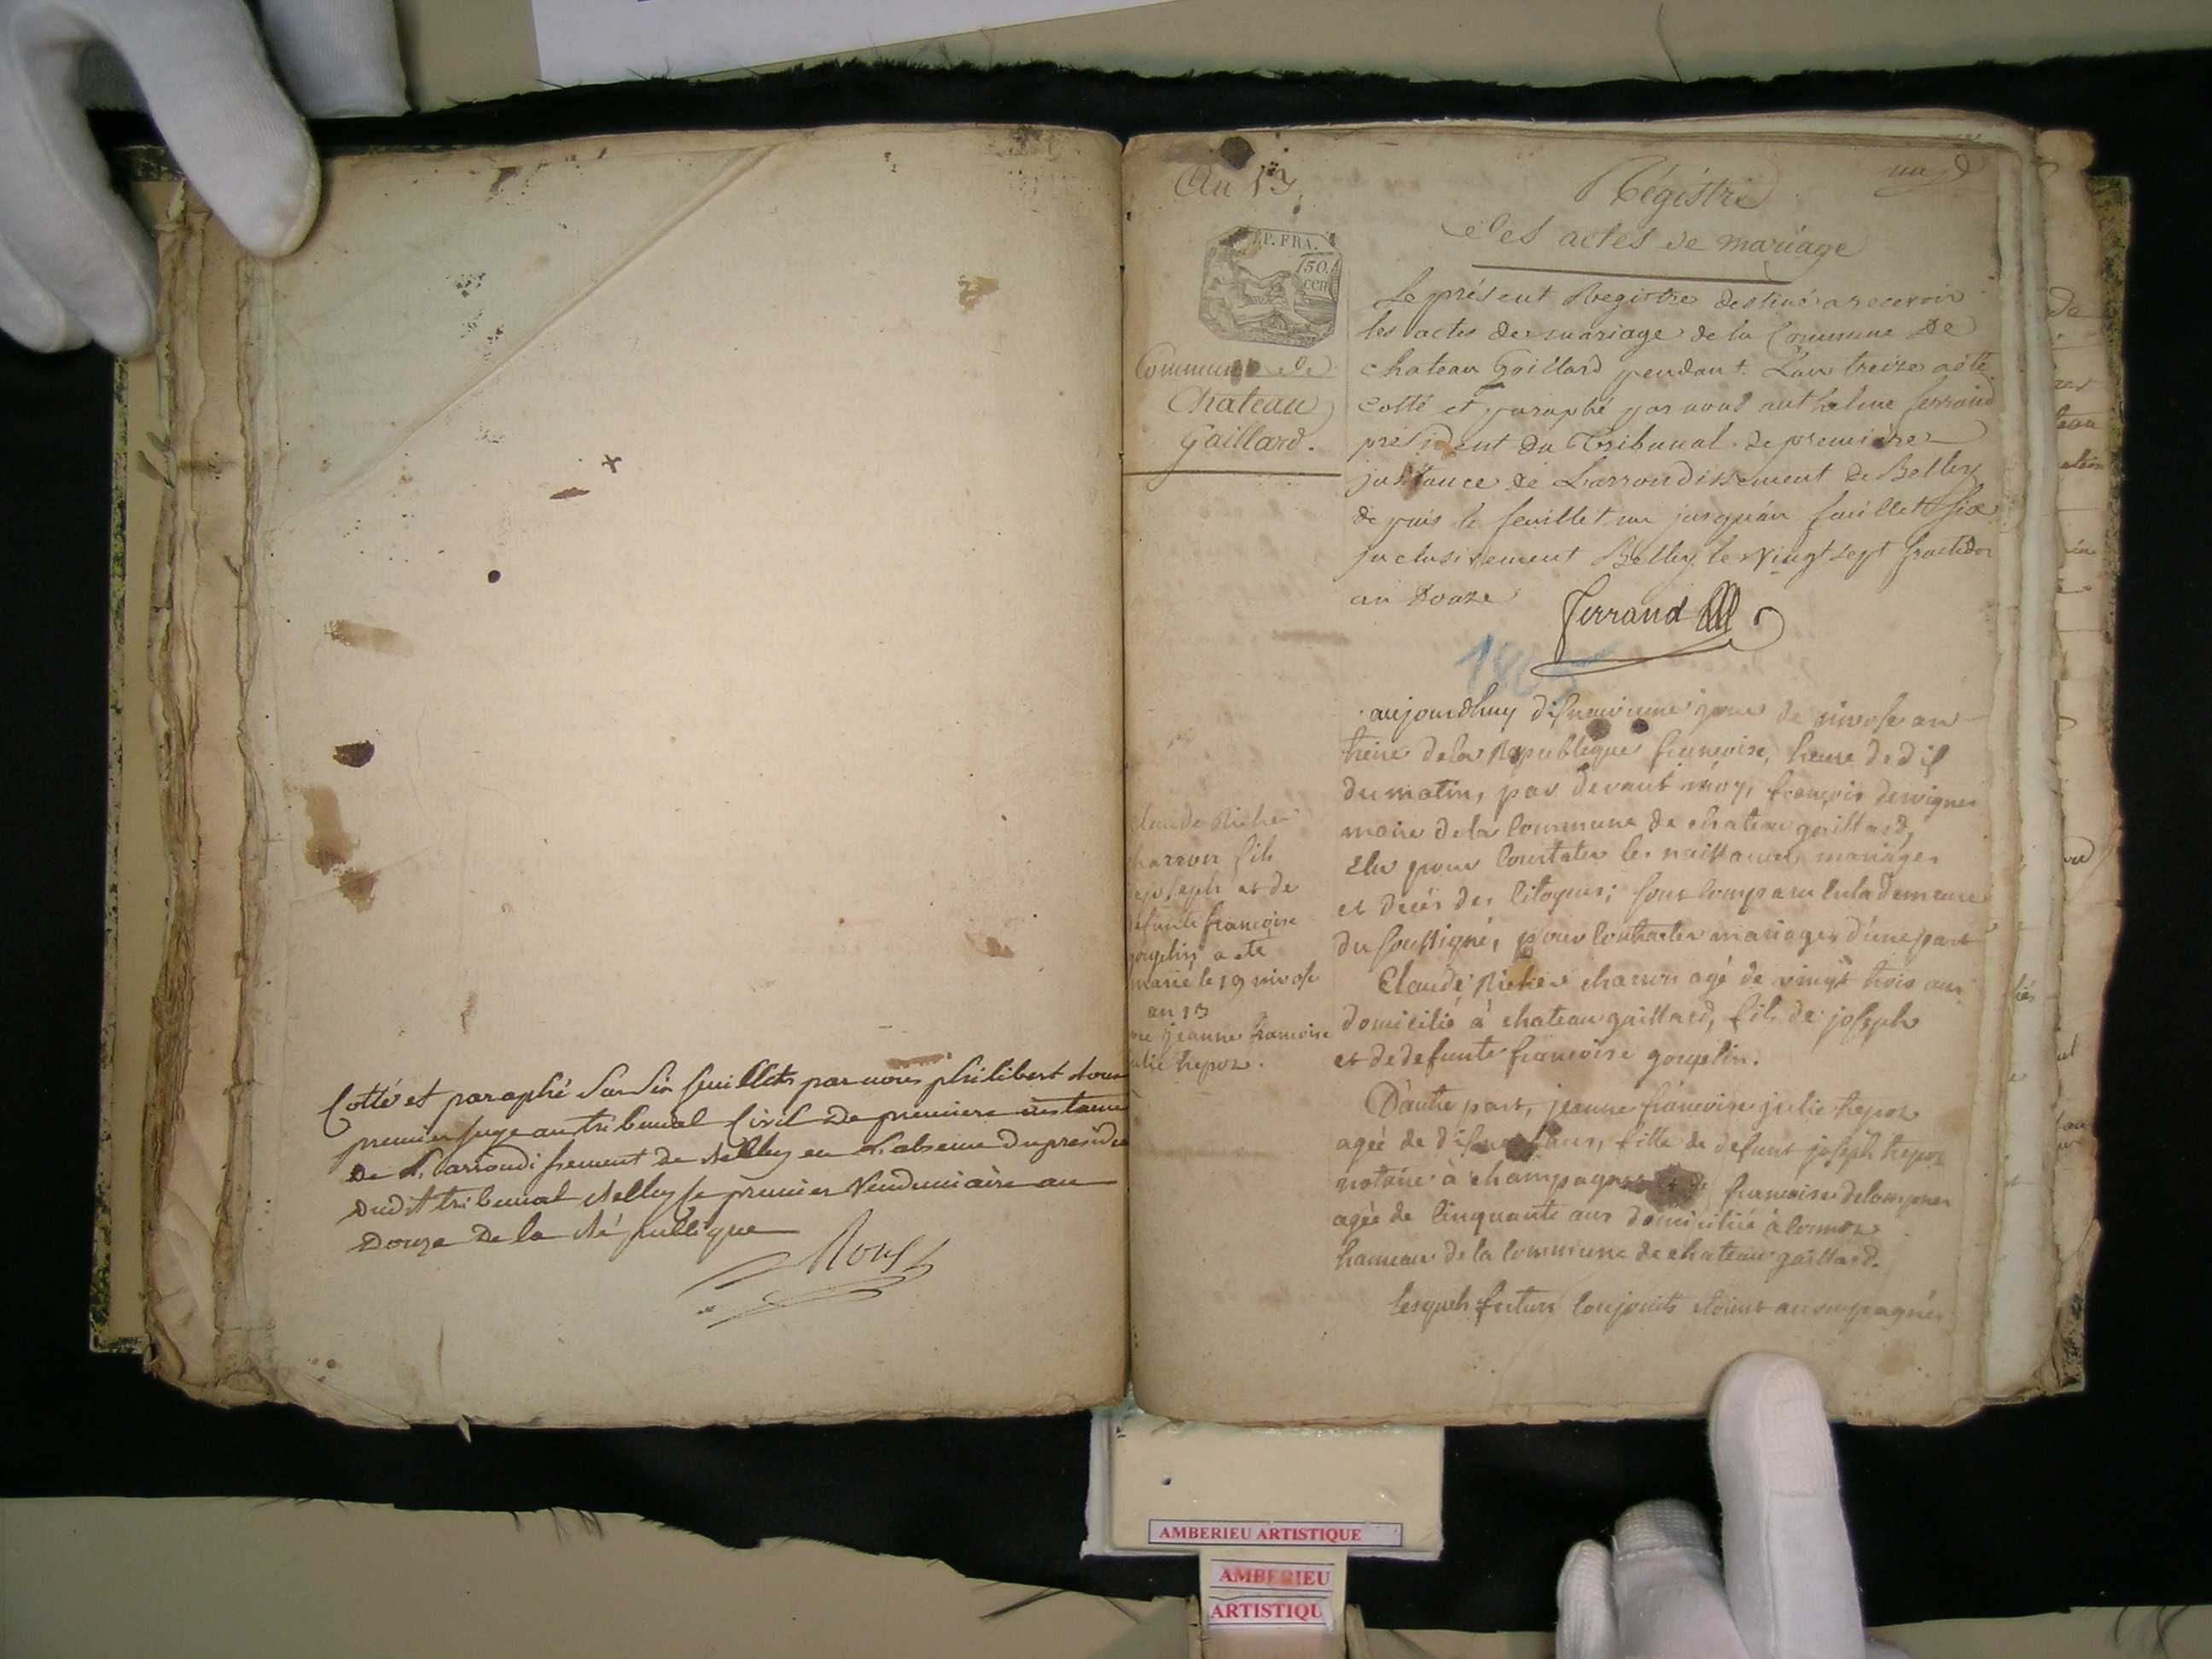 Cotté et paraphé sur six feuillets par nous philibert
premier juge au tribunal Civil de premiere instance
De L'arrondissement de Belley en L'absence du preside
Dudit tribunal Belley le premier Vendemiaire an
Douze De la République
Roux
An 13
un
Régistre
des actes de mariage
P. FRA.
50.
CEN
Commune de
Chateau
Gaillard.
Le présent Registre destiné a recevoir
les actes de mariage de la Commune De
chateau Gaillard pendant L'an treize a été
cotté et paraphé par nous anthelme ferrand
président du Tribunal de premiere
instance de L'arrondissement de Belley
depuis le feuillet un jusqu'au feuillet six
inclusivement Belley le vingt sept fructidor
an Douze
ferrand
1805
aujourdhuy disneuvieme jour de nivose an
treize de la Republique francoise, heure de dix
du matin, par devant moy, françois desvignes
maire de la Commune de chateau gaillard,
Elu pour Constater les naissances mariages
et décés des Citoyens; sont comparu en la demeure
du soussigné, pour Contracter mariage, d'une part
Claude Richer charron agé de vingt trois ans
domicilié à chateau gaillard, fils de joseph
et de defunte francoise goyelin.
D'autre part, jeanne francoise julie trepoz
agée de ans, fille de defunt joseph trepoz
notaire à champagne francoise
agée de Cinquante ans domiciliée à Cormoz
hameau de la Commune de chateau gaillard.
lesquels futurs Conjoints etoient accompagnés
Claude Richer
charron fils
de joseph et de
defunte francoise
goyelin, a été
marié le 19 nivose
an 13
jeanne francoise
julie trepoz.
AMBERIEU ARTISTIQUE
AMBERIEU
ARTISTIQU